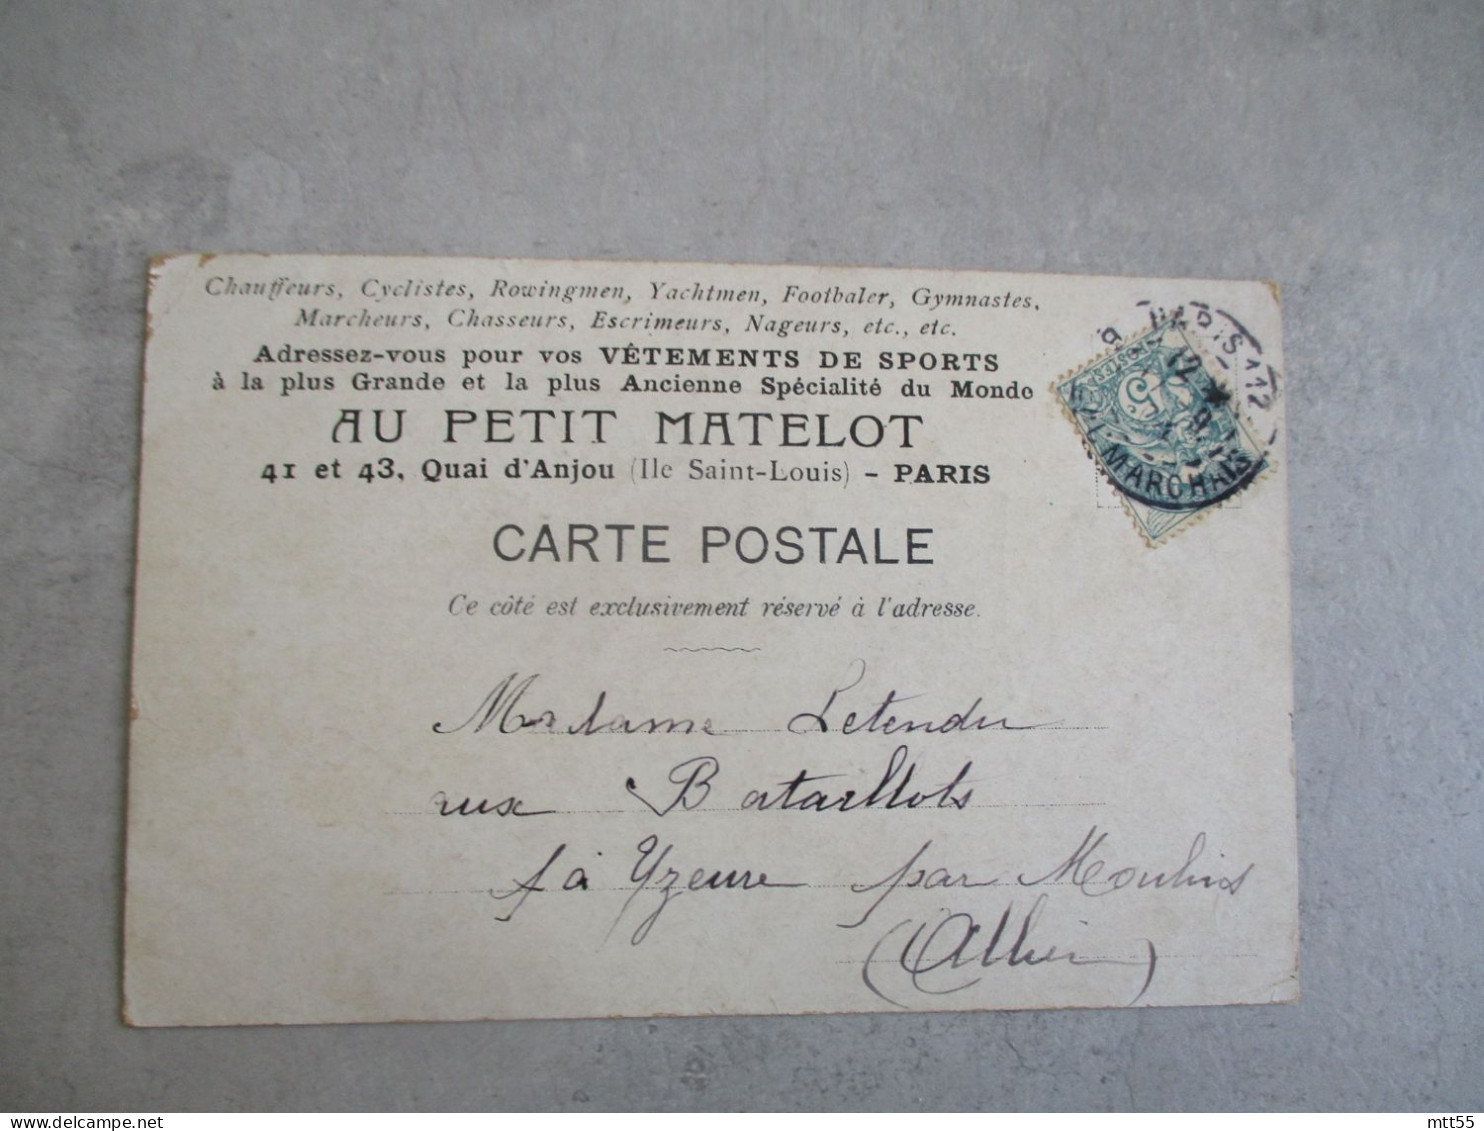 Chauffeurs, Cyclistes, Rowingmen, Yachtmen, Footbaler, Gymnastes,
Marcheurs, Chasseurs, Escrimeurs, Nageurs, etc., etc.
Adressez-vous pour vos VÊTEMENTS DE SPORTS
à la plus Grande et la plus Ancienne Spécialité du Monde
AU PETIT MATELOT
41 et 43, Quai d'Anjou (Ile Saint-Louis) - PARIS
PARIS 112
MARCHAIS
5
CARTE POSTALE
Ce côté est exclusivement réservé à l'adresse.
Madame Letendu
aux Bataillots
à Yzeure par Moulins
(Allier)
mtt55